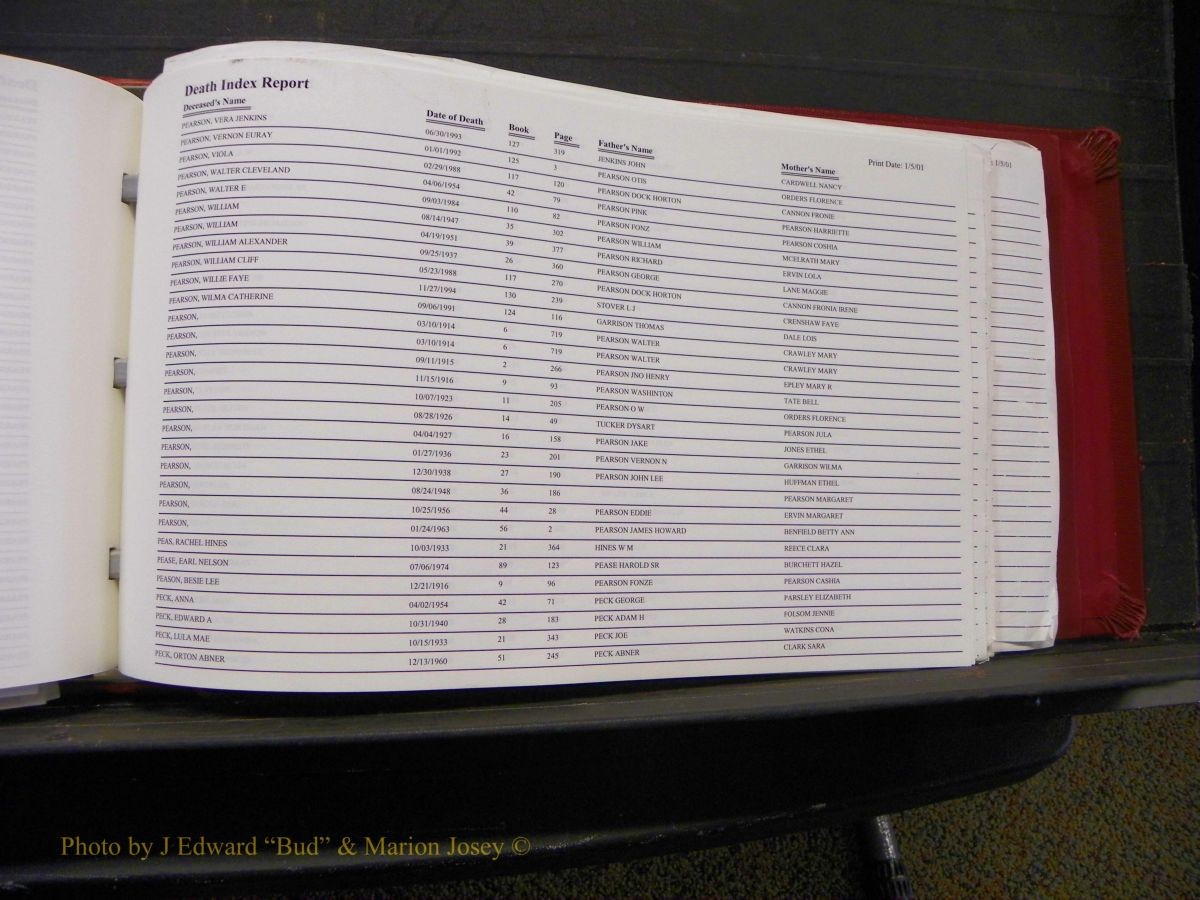 Death Index Report
Print Date: 1/5/01
1/5/01
Deceased's Name Date of Death Book Page Father's Name Mother's Name
PEARSON, VERA JENKINS 06/30/1993 127 319 JENKINS JOHN CARDWELL NANCY
PEARSON, VERNON EURAY 01/01/1992 125 3 PEARSON OTIS ORDERS FLORENCE
PEARSON, VIOLA 02/29/1988 117 120 PEARSON DOCK HORTON CANNON FRONIE
PEARSON, WALTER CLEVELAND 04/06/1954 42 79 PEARSON PINK PEARSON HARRIETTE
PEARSON, WALTER E 09/03/1984 110 82 PEARSON FONZ PEARSON COSHIA
PEARSON, WILLIAM 08/14/1947 35 302 PEARSON WILLIAM MCELRATH MARY
PEARSON, WILLIAM 04/19/1951 39 377 PEARSON RICHARD ERVIN LOLA
PEARSON, WILLIAM ALEXANDER 09/25/1937 26 360 PEARSON GEORGE LANE MAGGIE
PEARSON, WILLIAM CLIFF 05/23/1988 117 270 PEARSON DOCK HORTON CANNON FRONIA IRENE
PEARSON, WILLIE FAYE 11/27/1994 130 239 STOVER L J CRENSHAW FAYE
PEARSON, WILMA CATHERINE 09/06/1991 124 116 GARRISON THOMAS DALE LOIS
PEARSON, 03/10/1914 6 719 PEARSON WALTER CRAWLEY MARY
PEARSON, 03/10/1914 6 719 PEARSON WALTER CRAWLEY MARY
PEARSON, 09/11/1915 2 266 PEARSON JNO HENRY EPLEY MARY R
PEARSON, 11/15/1916 9 93 PEARSON WASHINTON TATE BELL
PEARSON, 10/07/1923 11 205 PEARSON O W ORDERS FLORENCE
PEARSON, 08/28/1926 14 49 TUCKER DYSART PEARSON JULA
PEARSON, 04/04/1927 16 158 PEARSON JAKE JONES ETHEL
PEARSON, 01/27/1936 23 201 PEARSON VERNON N GARRISON WILMA
PEARSON, 12/30/1938 27 190 PEARSON JOHN LEE HUFFMAN ETHEL
PEARSON, 08/24/1948 36 186 PEARSON MARGARET
PEARSON, 10/25/1956 44 28 PEARSON EDDIE ERVIN MARGARET
PEARSON, 01/24/1963 56 2 PEARSON JAMES HOWARD BENFIELD BETTY ANN
PEAS, RACHEL HINES 10/03/1933 21 364 HINES W M REECE CLARA
PEASE, EARL NELSON 07/06/1974 89 123 PEASE HAROLD SR BURCHETT HAZEL
PEASON, BESIE LEE 12/21/1916 9 96 PEARSON FONZE PEARSON CASHIA
PECK, ANNA 04/02/1954 42 71 PECK GEORGE PARSLEY ELIZABETH
PECK, EDWARD A 10/31/1940 28 183 PECK ADAM H FOLSOM JENNIE
PECK, LULA MAE 10/15/1933 21 343 PECK JOE WATKINS CONA
PECK, ORTON ABNER 12/13/1960 51 245 PECK ABNER CLARK SARA
Photo by J Edward “Bud” & Marion Josey ©